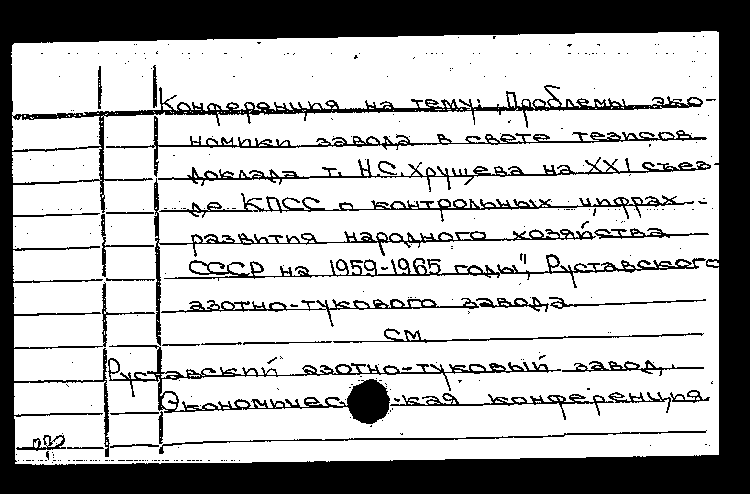 Конференция на тему: „Проблемы эко-
номики завода в свете тезисов
доклада т. Н.С. Хрущева на XXI съез-
де КПСС о контрольных цифрах
развития народного хозяйства
СССР на 1959-1965 годы", Руставского
азотно-тукового завода
см.
Руставский азотно-туковый завод.
Экономическая конференция